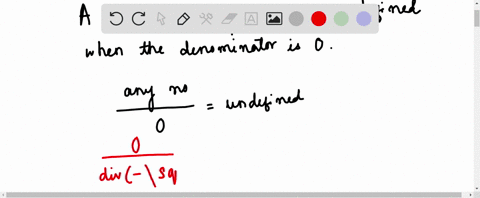 A ined
when the denominator is 0.
any no
0
= undefined
0
div(-\sq